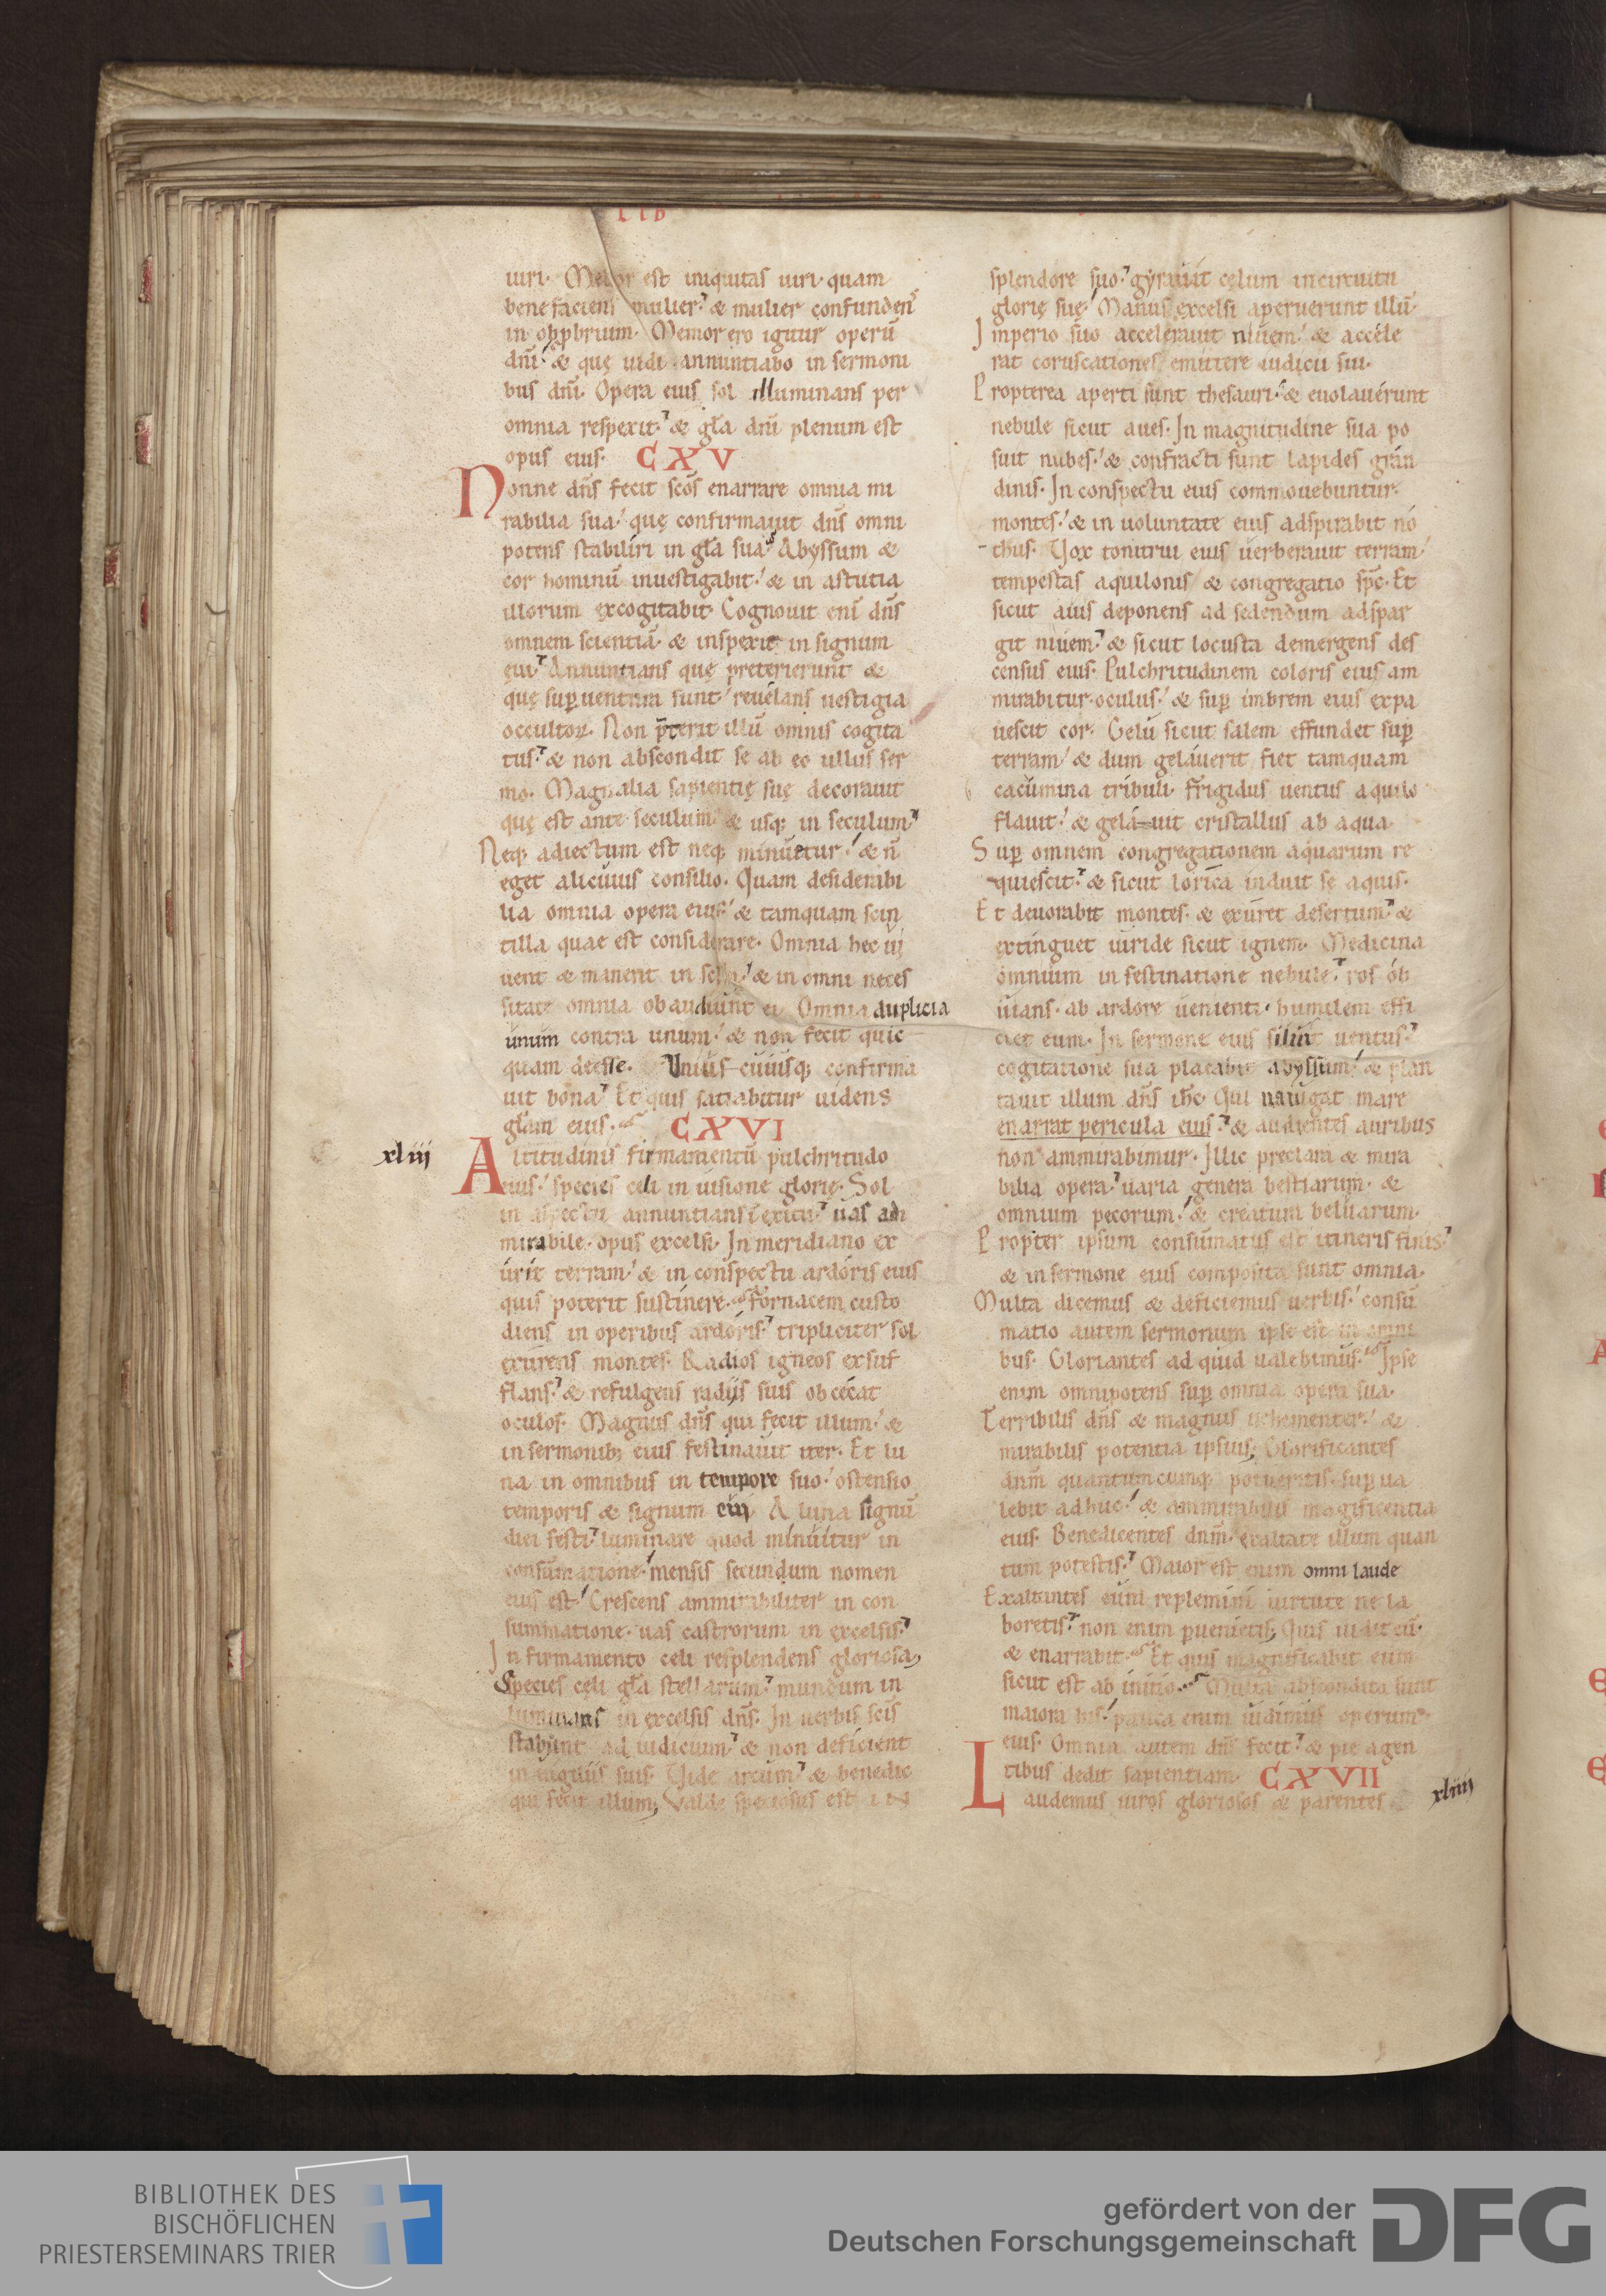 LIB
uiri· Melior est iniquitas uiri· quam
bene faciens mulier· & mulier confundens̄
in obp̱brium· Memor ero igitur operū
dn̄i· & quę uidi annuntiabo in sermoni
bus dn̄i· Opera eius sol illuminans per
omnia respexit· & gl̄a dn̄i plenum est
opus eius· CXV
Nonne dn̄s fecit sc̄os enarrare omnia mi
rabilia sua· quę confirmauit dn̄s omni
potens stabiliri in gl̄a sua· Abyssum &
cor hominū inuestigabit· & in astutia
illorum excogitabit· Cognouit eni̅ dn̄s
omnem scientiā· & inspexit in signum
ęui· Annuntians quę preterierunt &
quę suꝑuentura sunt· reuelans uestigia
occultoꝝ· Non p̄terit illū omnis cogita
tus· & non abscondit se ab eo ullus ser
mo· Magnalia sapientię suę decorauit
quę est ante seculum· & usq; in seculum·
Neq; adiectum est neq; minuetur· & n̄
eget alicuius consilio· Quam desiderabi
lia omnia opera eius· & tamquam scin
tilla quae est considerare· Omnia hec ui
uent & manent in sclm̄· & in omni neces
sitate omnia obaudiunt ei Omnia duplicia
unum contra unum· & non fecit quic
quam deesse. Unius cuiusq; confirma
uit bona· Et quis satiabitur uidens
gl̄am eius· CXVI
xliii
Altitudinis firmamentū pulchritudo
eius· species celi in uisione glorię· Sol
in aspectu annuntians ī exitu· uas ad
mirabile· opus excelsi· In meridiano ex
urit terram· & in conspectu ardoris eius
quis poterit sustinere· Fornacem custo
diens in operibus ardoris· tripliciter sol
exurens montes· Radios igneos exsuf
flans· & refulgens radiis suis obcecat
oculos· Magnus dn̄s qui fecit illum· &
in sermonib; eius festinauit iter· Et lu
na in omnibus in tempore suo· ostensio
temporis & signum eui· A luna signū
diei festi· luminare quod minuitur in
consūmatione· mensis secundum nomen
eius est· Crescens ammirabiliter in con
summatione· uas castrorum in excelsis·
In firmamento celi resplendens gloriosa;
Species cęli gl̄a stellarum· mundum in
luminans in excelsis dn̄s· In uerbis sc̄is
stabunt ad iudicium· & non deficient
in uigiliis suis· Uide arcum· & benedic
qui fecit illum; Valde speciosus est in
splendore suo· gyrauit celum in circuitu
glorię suę· Manus excelsi aperuerunt illū·
Imperio suo accelerauit niuem· & accele
rat coruscationes emittere iudicii sui·
Propterea aperti sunt thesauri· & euolauerunt
nebule sicut aues· In magnitudine sua po
suit nubes· & confracti sunt lapides gran
dinis· In conspectu eius commouebuntur·
montes· & in uoluntate eius adspirabit no
thus· Vox tonitrui eius uerberauit terram·
tempestas aquilonis & congregatio sp̄c· Et
sicut auis deponens ad sedendum adspar
git niuem· & sicut locusta demergens des
census eius· Pulchritudinem coloris eius am
mirabitur oculus· & suꝑ imbrem eius expa
uescit cor· Gelu sicut salem effundet suꝑ
terram· & dum gelauerit fiet tamquam
cacumina tribuli· Frigidus uentus aquilo
flauit· & gela-uit cristallus ab aqua
Suꝑ omnem congregationem aquarum re
quiescit· & sicut lorica induit se aquis·
Et deuorabit montes· & exuret desertum· &
extinguet uiride sicut ignem· Medicina
omnium in festinatione nebule· ros ob
uians· ab ardore uenienti· humilem effi
ciet eum· In sermone eius siluit uentus·
cogitatione sua placabit abyssum· & plan
tauit illum dn̄s ih̄c· Qui nauigat mare
enarrat pericula eius· & audientes auribus
non ammirabimur· Illic preclara & mira
bilia opera· uaria genera bestiarum· &
omnium pecorum· & creatum beluarum·
Propter ipsum consūmatus est itineris finis·
& in sermone eius composita sunt omnia·
Multa dicemus & deficiemus uerbis· consū
matio autem sermonum ipse est in omni
bus· Gloriantes ad quid ualebimus· Ipse
enim omnipotens suꝑ omnia opera sua·
Terribilis dn̄s & magnus uehementer· &
mirabilis potentia ipsius; Glorificantes
dnm̄ quantumcumq; potueritis· suꝑua
lebit adhuc· & ammirabilis magificentia
eius· Benedicentes dnm̄· exaltate illum quan
tum potestis· Maior est enim omni laude
Exaltantes eum replemini uirtute ne la
boretis· non enim ꝑuenietis; Quis uidit eū·
& enarrabit· Et quis magnificabit eum
sicut est ab initio· Multa abscondita sunt
maiora his· pauca enim uidimus operum
eius· Omnia autem dn̄s fecit· & pie agen
tibus dedit sapientiam· CXVII
Laudemus uiros gloriosos & parentes
xliiii
BIBLIOTHEK DES
BISCHÖFLICHEN
PRIESTERSEMINARS TRIER
gefördert von der
Deutschen Forschungsgemeinschaft
DFG